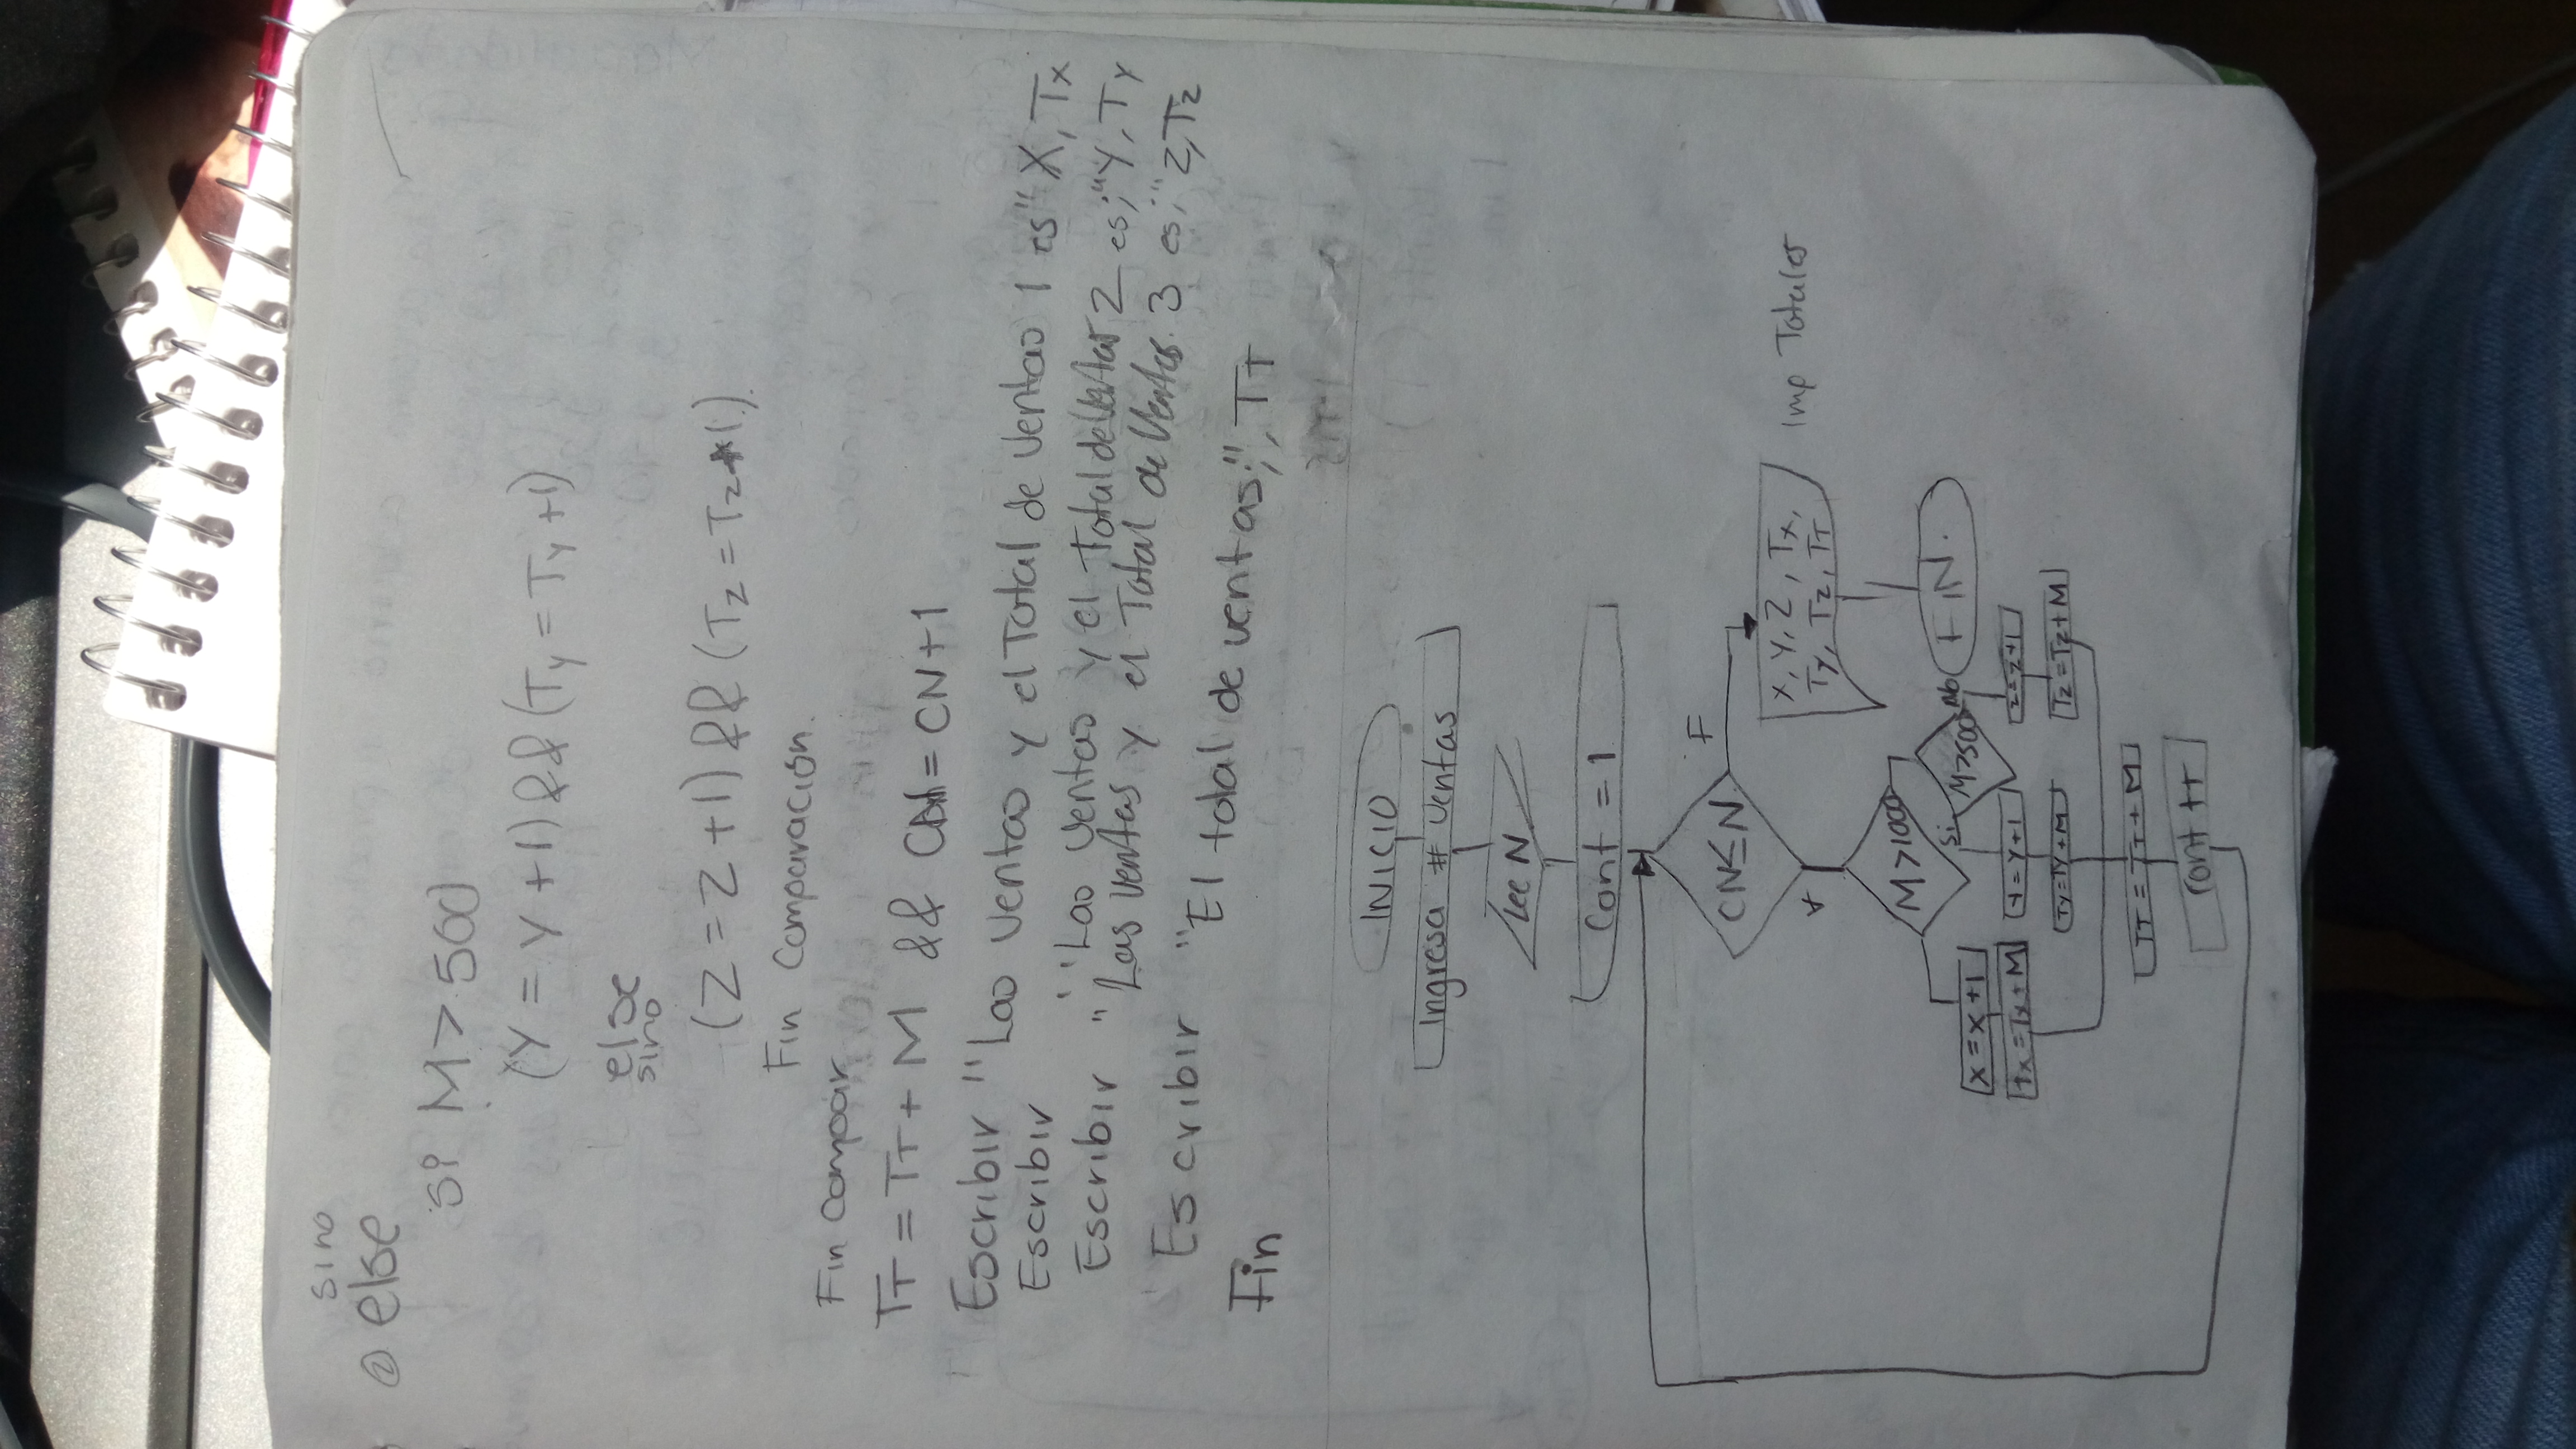 sino
② else
si M > 500
(Y = Y + 1) && (Ty = Ty + 1)
else
sino
(Z = Z + 1) && (Tz = Tz + 1).
Fin Comparación.
Fin compoar
TT = TT + M && = CN + 1
Escribir "Las Ventas y el Total de Ventas 1 es" X, Tx
Escribir "Las Ventas y el Total de Ventas 2 es;" Y, Ty
Escribir "Las Ventas y el Total de Ventas 3 es;" Z, Tz
Escribir "El total de ventas;", TT
Fin
INICIO
Ingresa # Ventas
Lee N
Cont = 1
CN ≤ N
F
X, Y, Z, Tx,
Ty, Tz, TT
Imp Totales
FIN.
V
M > 1000
M > 500
No
Si
X = X + 1
Tx = Tx + M
Y = Y + 1
Ty = Ty + M
Z = Z + 1
Tz = Tz + M
TT = TT + M
Cont ++